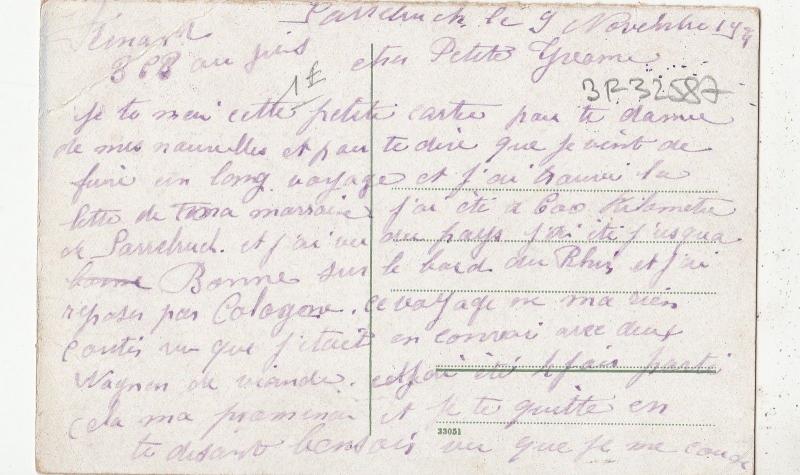 Sarrebruck le 9 Novembre 19
Kinart
au jus cher Petite Yreame
1 £
BR32587
Je te mai cette petite carte pour te danne
de mes nauvelles et pour te dire que je vint de
faire un long voyage et j'ai trouvé la
lette de ma marraine j'ai été a 600 Kilometre
de Sarrebruck. et j'ai vu du pays j'ai été jusqua
Bonne sur le bord du Rhin, et j'ai
reposer par Cologne. ce voyage ne ma rien
couté vu que j'était en convoi avec deux
Wagnon de viande. et j'ai été 4 jours parti
cela ma promené et je te quitte en
33051
te disant bonsoir vu que je me couche